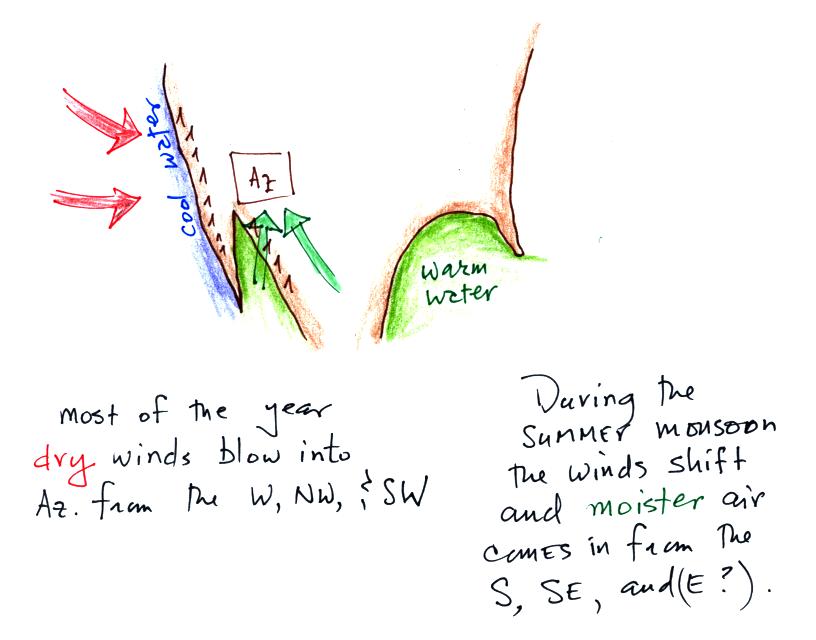 cool water
Az
warm
water
most of the year
dry winds blow into
Az. from the W, NW, & SW
During the
SUMMER monsoon
the winds shift
and moister air
comes in from the
S, SE, and (E ?).